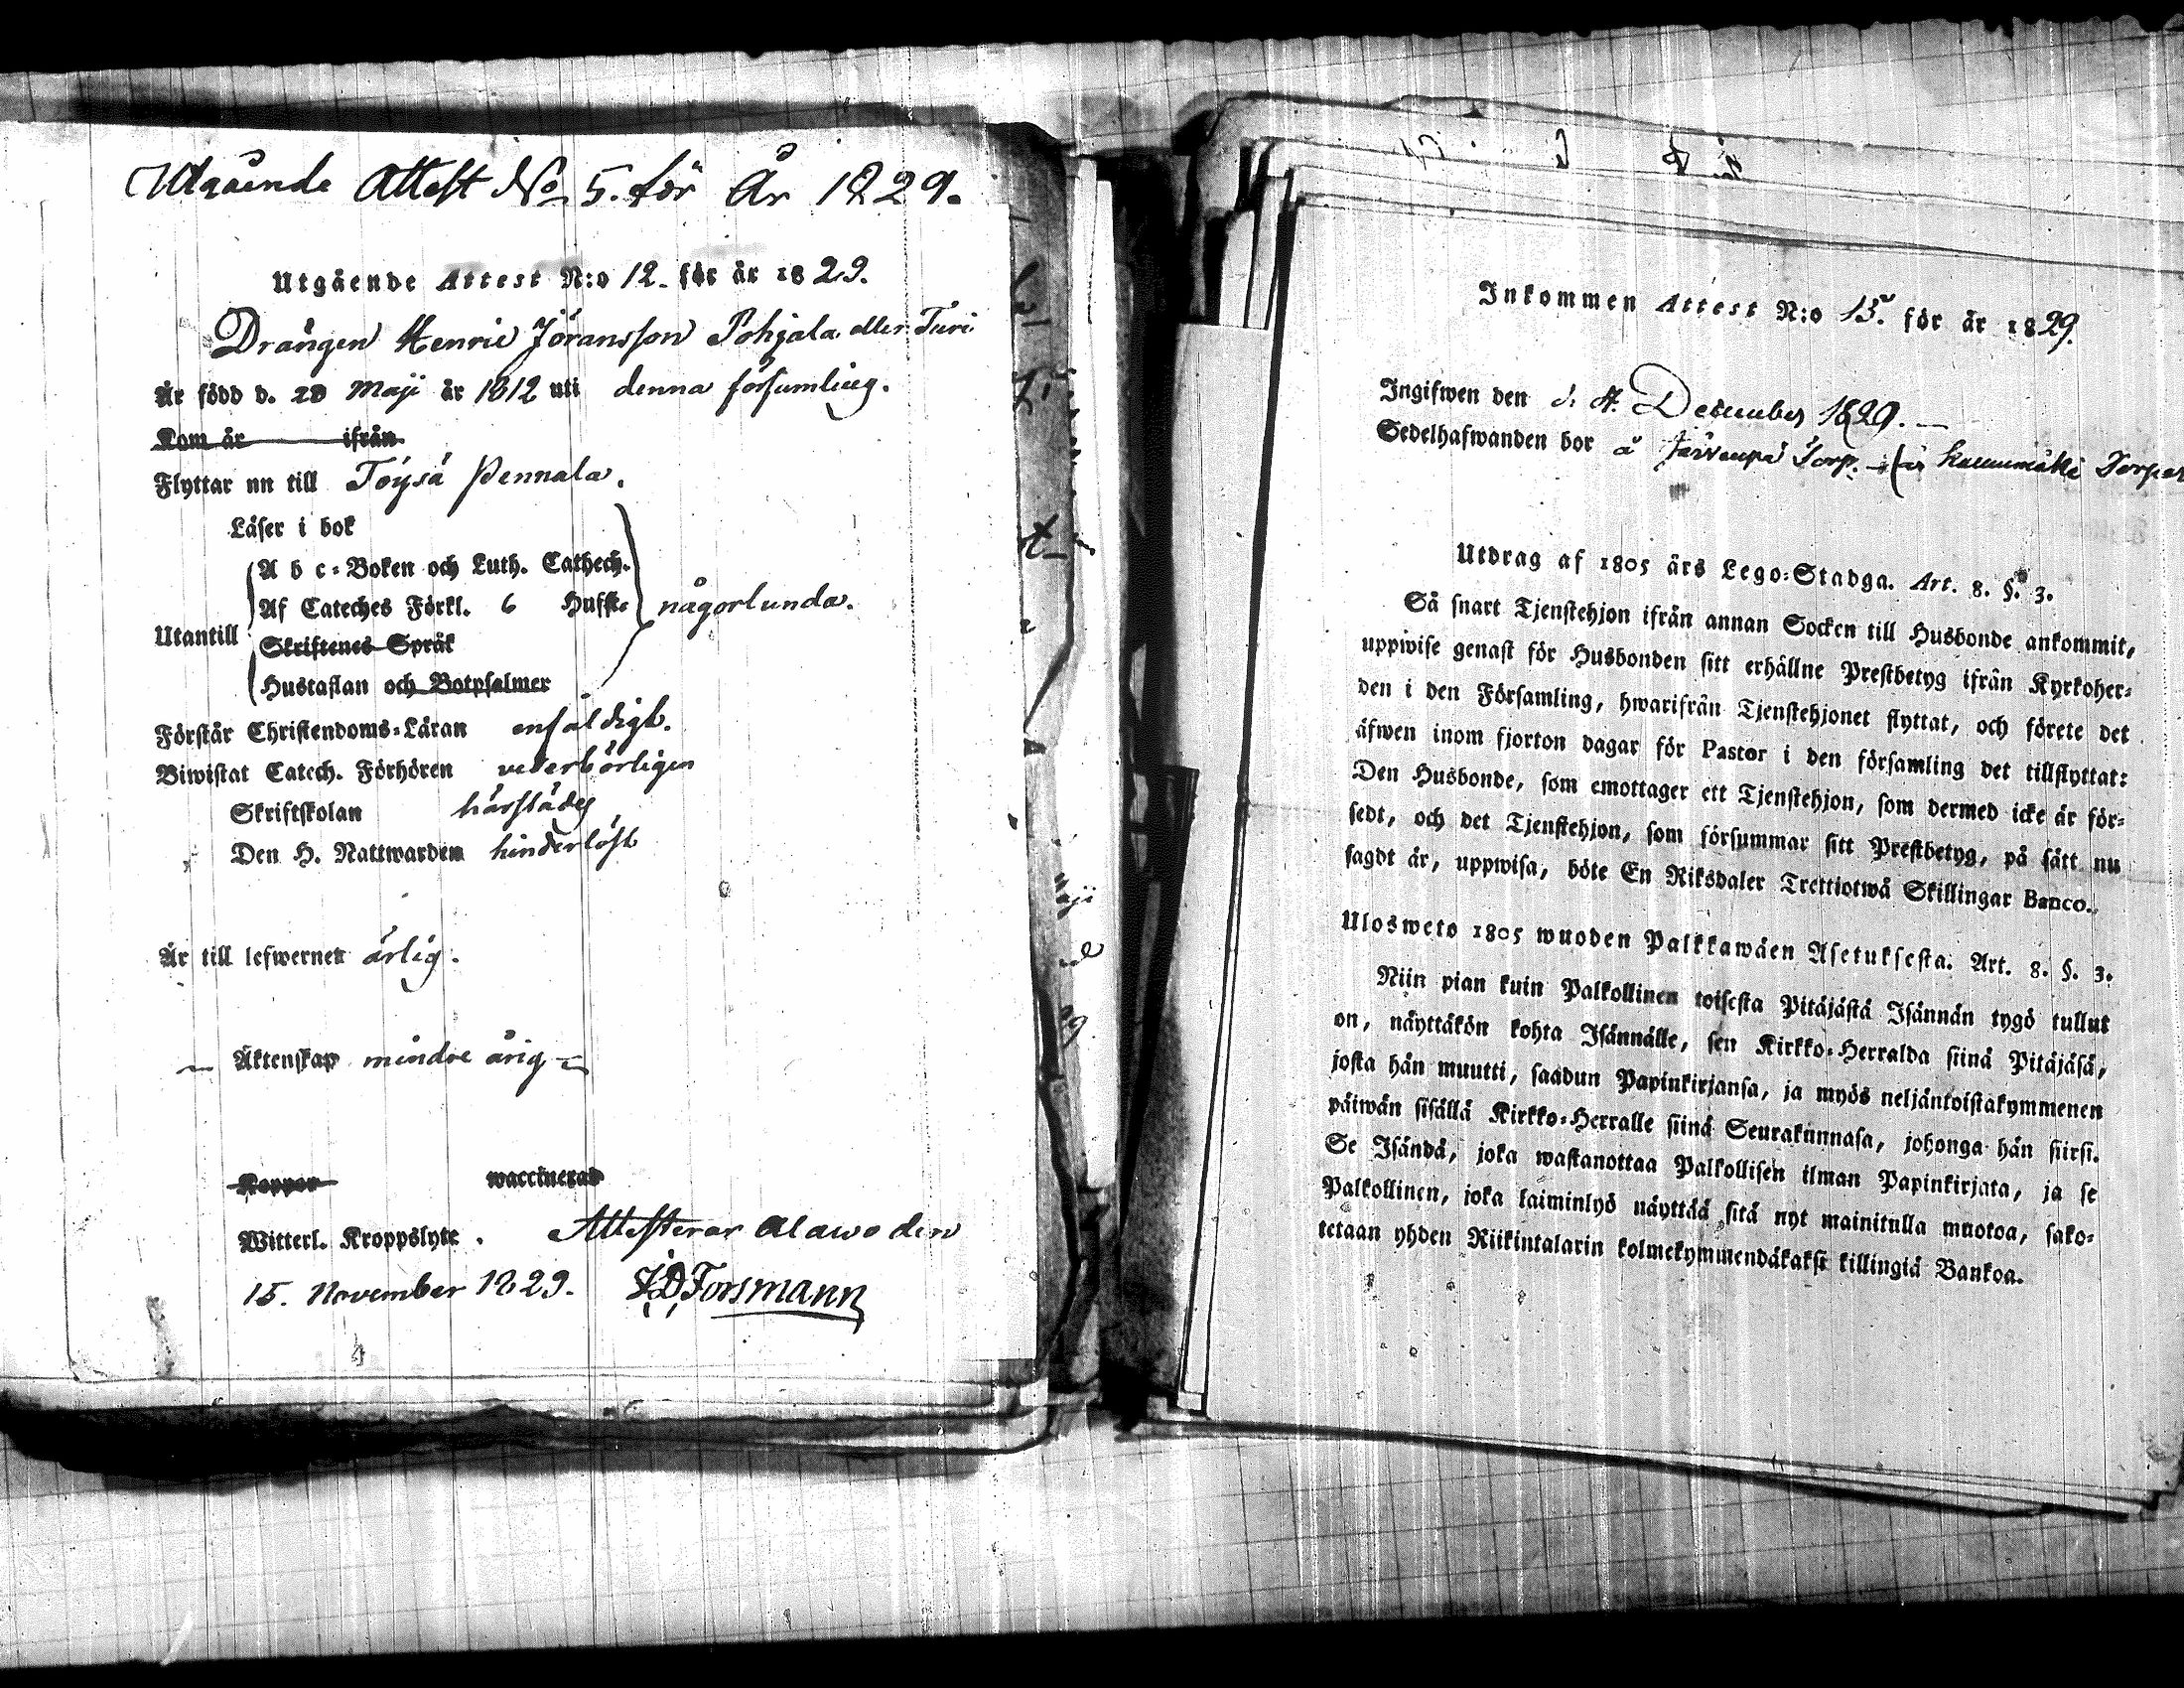 Utgående Attest No 5. för År 1829.
Utgående Attest N:o 12. för år 1829.
Drängen Henric Jöransson Pohjala eller Turi
Är född d. 28 Maji år 1812 uti denna församling.
Kom år ifrån
Flyttar nu till Töysä Pennala.
Läser i bok
A b c-Boken och Luth. Cathech.
Af Cateches Förkl. 6 Hufst.
någorlunda.
Utantill
Skriftenes Språk
Hustaflan och Botpsalmer
Förstår Christendoms-Läran enfaldigt.
Biwistat Catech. Förhören vederbörligen
Skriftskolan härstädes
Den H. Nattwarden hinderlöst
Är till lefwernet ärlig.
Äktenskap minderårig
Koppor waccinerad
Witterl. Kroppslyte. Attesterar Alawo den
15. November 1829. Forsmann
Inkommen Attest N:o 15. för år 1829.
Ingifwen den December 1829.
Sedelhafwanden bor å Järvenpä Torp.
Utdrag af 1805 års Lego-Stadga. Art. 8. §. 3.
Så snart Tjenstehjon ifrån annan Socken till Husbonde ankommit,
uppwise genast för Husbonden sitt erhållne Prestbetyg ifrån Kyrkoher-
den i den Församling, hwarifrån Tjenstehjonet flyttat, och förete det
äfwen inom fjorton dagar för Pastor i den församling det tillflyttat:
Den Husbonde, som emottager ett Tjenstehjon, som dermed icke är för-
sedt, och det Tjenstehjon, som försummar sitt Prestbetyg, på sätt nu
sagdt är, uppwisa, böte En Riksdaler Trettiotwå Skillingar Banco.
Ulosweto 1805 wuoden Palkkawäen Asetuksesta. Art. 8. §. 3.
Niin pian kuin Palkollinen toisesta Pitäjästä Isännän tygö tullut
on, näyttäkön kohta Isännälle, sen Kirkko-Herralda siinä Pitäjäsä,
josta hän muutti, saadun Papinkirjansa, ja myös neljäntoistakymmenen
päiwän sisällä Kirkko-Herralle siinä Seurakunnasa, johonga hän siirsi.
Se Isändä, joka wastanottaa Palkollisen ilman Papinkirjata, ja se
Palkollinen, joka laiminlyö näyttää sitä nyt mainitulla muotoa, sako-
tetaan yhden Riikintalarin kolmekymmendäkaksi killingiä Bankoa.